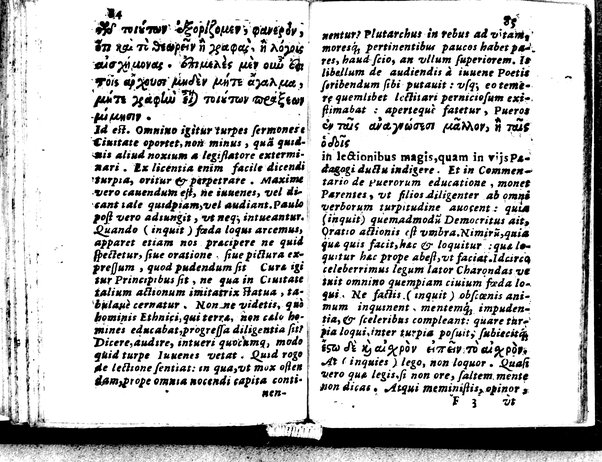 84
τῶν τοιούτων ἐξορίζομεν, φανερὸν,
ὅτι καὶ τὸ θεωρεῖν ἢ γραφὰς, ἢ λόγους
ἀσχήμονας. ἐπιμελὲς μὲν οὖν ἔστω
τοῖς ἄρχουσι μηδὲν μήτε ἄγαλμα,
μήτε γραφὴν εἶναι τοιούτων πράξεων
μίμησιν.
Id est. Omnino igitur turpes sermones è
Ciuitate oportet, non minus, quã quid-
nis aliud noxium a legislatore extermi-
nari. Ex licentia enim facile dicendi
turpia, oritur & perpetrare. Maxime
vero cauendum est, ne iuuenes, vel di-
cant tale quidpiam, vel audiant. Paulo
post vero adiungit, vt neq; intueantur.
Quando (inquit) fœda loqui arcemus,
apparet etiam nos præcipere ne quid
spectetur, siue oratione, siue pictura ex-
pressum, quod pudendum sit Cura igi
tur Principibus sit, ne qua in Ciuitate
talium actionum imitatrix statua, ta-
bulaue cernatur. Non ne videtis, quò
hominis Ethnici, qui terra, non cælo ho-
mines educabat, progressa diligentia sit?
Dicere, audire, intueri quocumq; modo
quid turpe Iuuenes vetat. Quid rogo
de lectione sentiat: in qua, vt mox osten
dam, prope omnia nocendi capita conti-
nen-
85
nentur? Plutarchus in rebus ad vitam,
moresq; pertinentibus paucos habet pa-
res, haud scio, an vllum superiorem. Is
libellum de audiendis à iuuene Poetis
scribendum sibi putauit: vsq; eo teme-
re quemlibet lectitari perniciosum exi-
stimabat: aperteque fatetur, Pueros
ἐν ταῖς ἀναγνώσεσι μᾶλλον, ἢ ταῖς
ὁδοῖς
in lectionibus magis, quam in vijs Pæ-
dagogi ductu indigere. Et in Commen-
tario de Puerorum educatione, monet
Parentes, vt filios diligenter ab omni
verborum turpitudine auocent: quia
(inquit) quemadmodũ Democritus ait,
Oratio actionis est vmbra. Nimirũ, quia
quæ quis facit, hæc & loquitur: quæ lo-
quitur hæc prope abest, vt faciat. Idcirco
celeberrimus legum lator Charondas ve
tuit omnino quempiam ciuium fœda lo-
qui. Ne factis (inquit) obscœnis ani-
mum inquinent, mentemq; impuden-
tia, & sceleribus compleant: quare tur-
pia loqui, inter turpia posuit, subiecitq;
ἔστω δὲ καὶ αἰσχρὸν εἰπεῖν τὸ αἰσχρόν.
At (inquies) lego, non loquor. Quasi
vero quæ legis, si non ore, saltem mente
non dicas. Atqui meministis, opinor,
F 3 vt